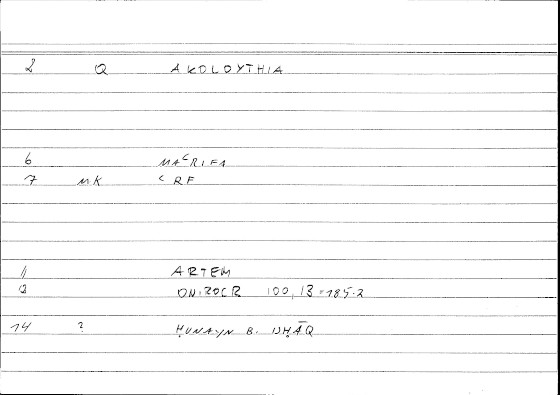 2 Q AKOLOYTHIA
6 MAʿRIFA
7 MK ʿRF
11 ARTEM
12 ONIROCR 100,13 = 185.2
14 ? ḤUNAYN B. ISḤĀQ